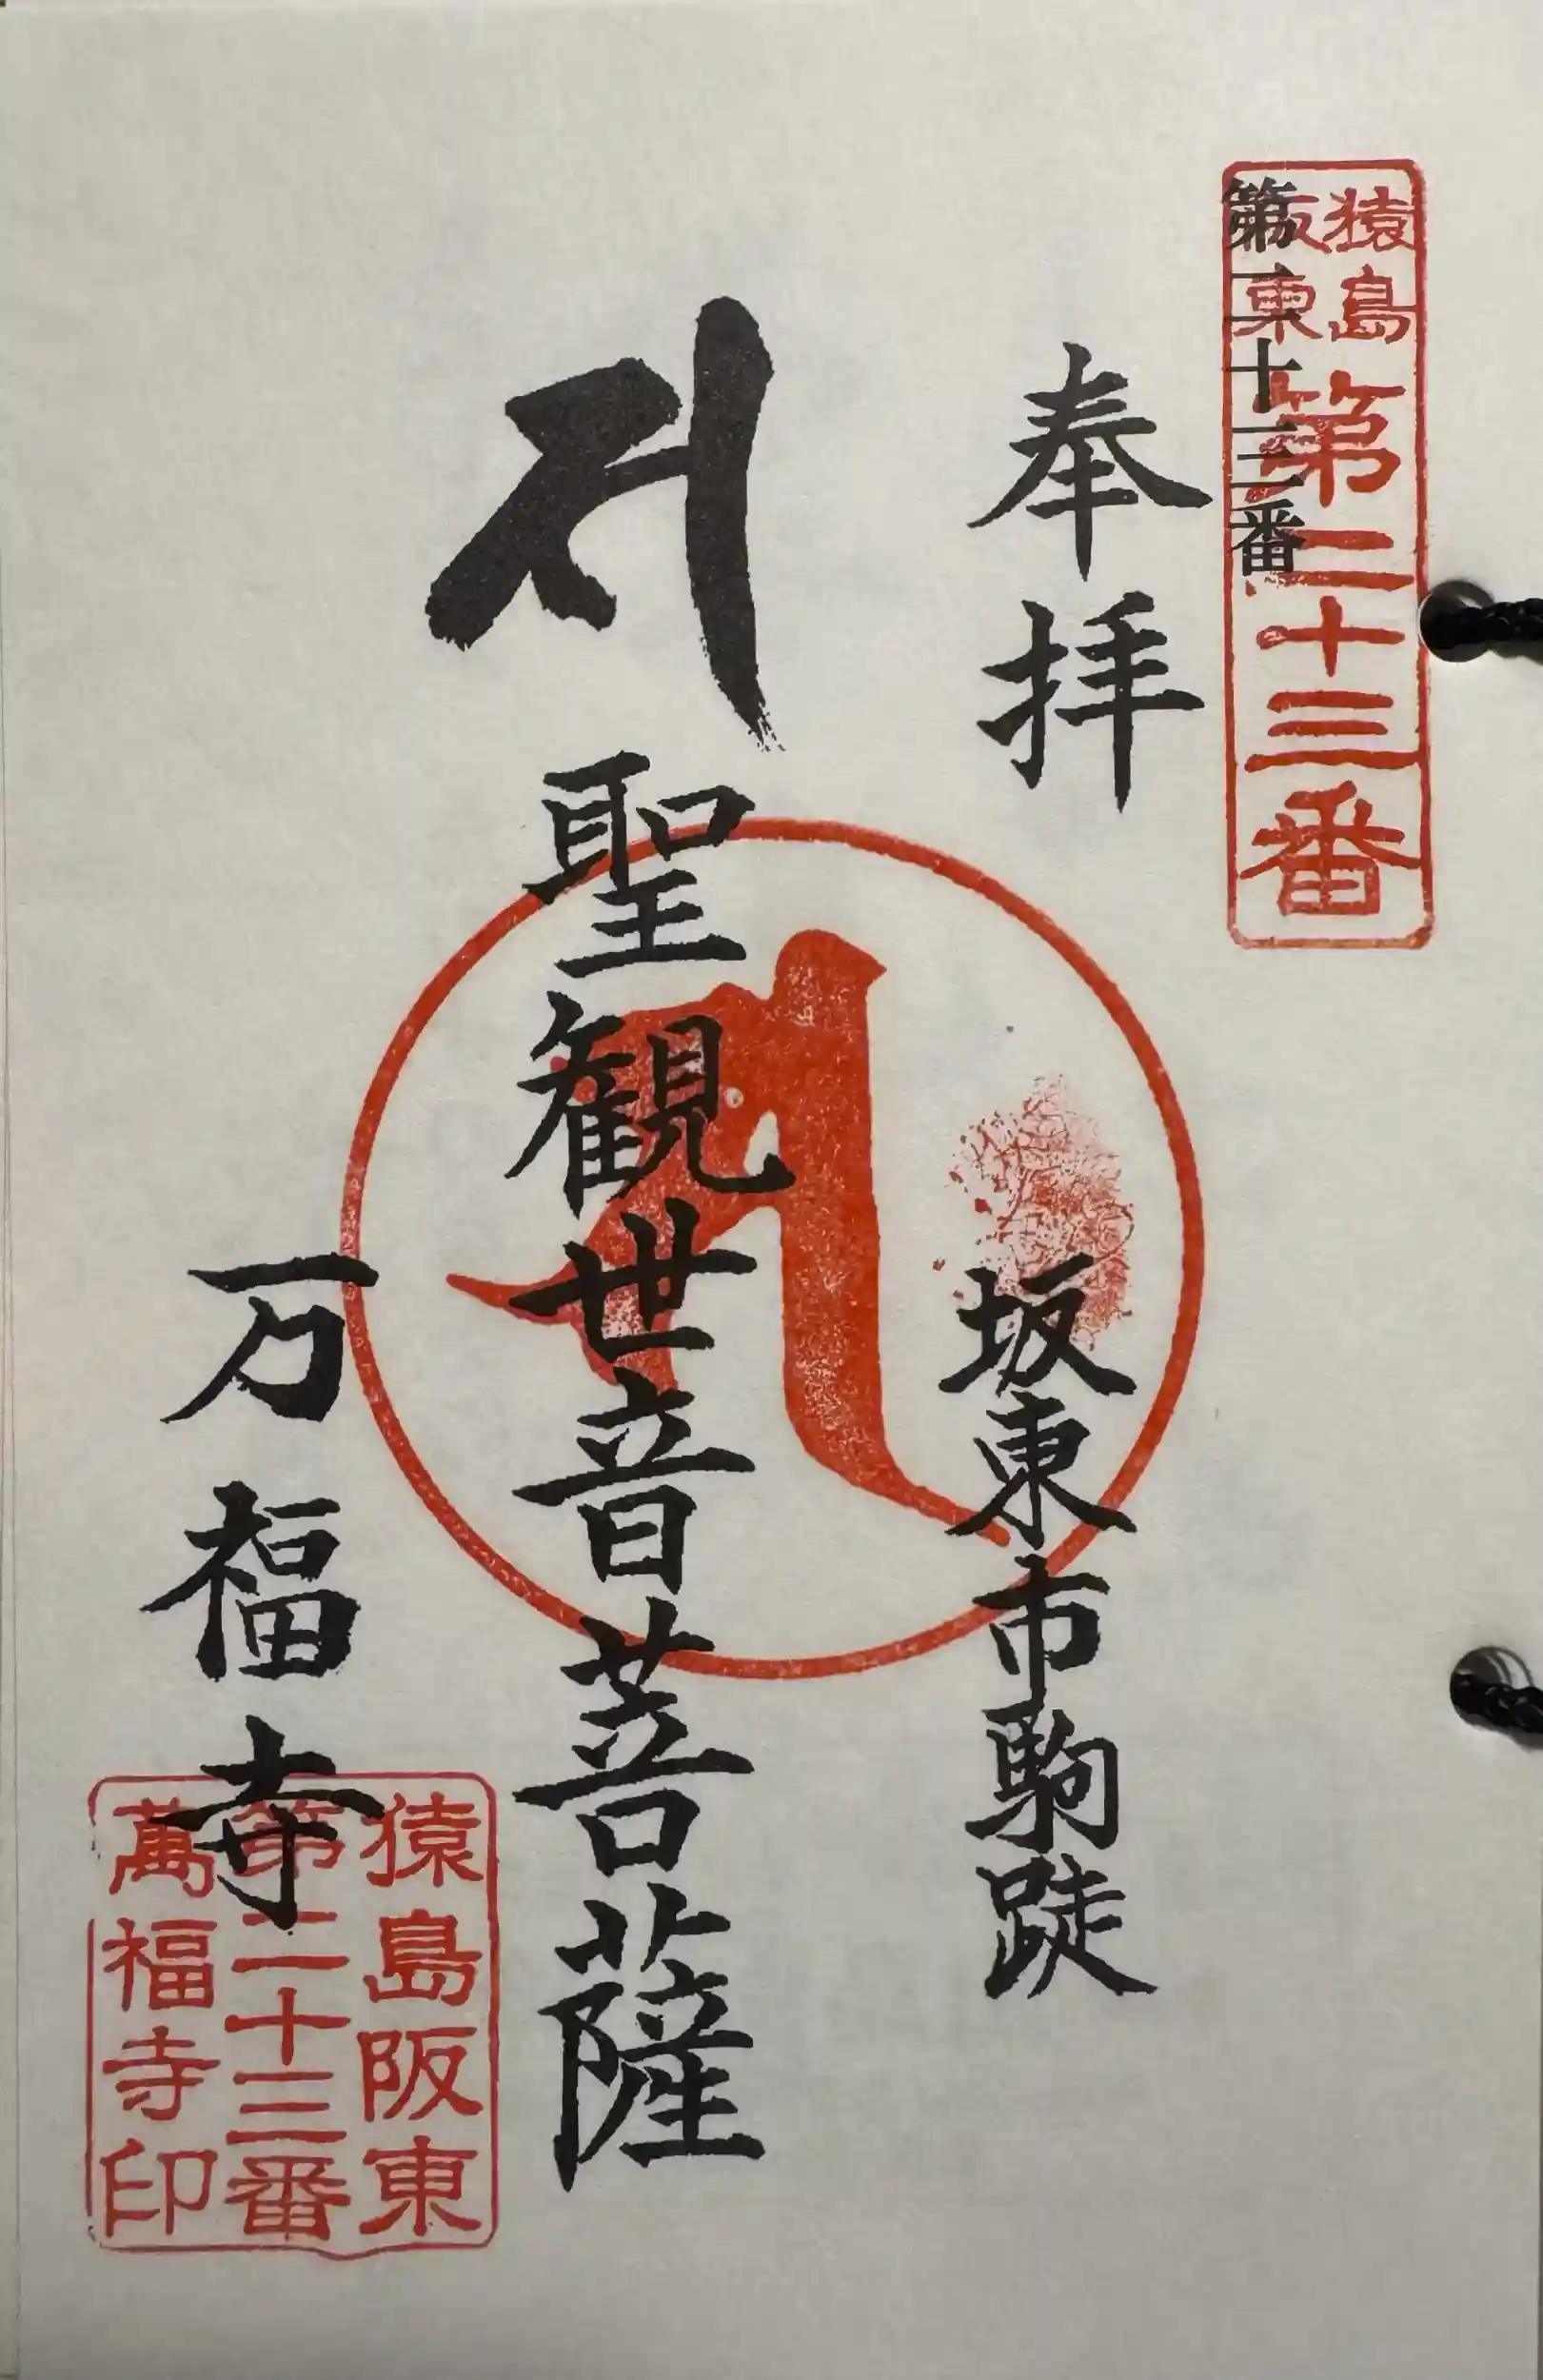 猿島
阪東
第二十三番
第二十三番
奉拝
坂東市駒跿
聖観世音菩薩
万福寺
猿島阪東
第二十三番
萬福寺印